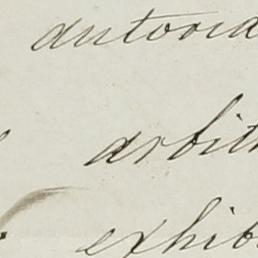 autorid
arbitr
exhib